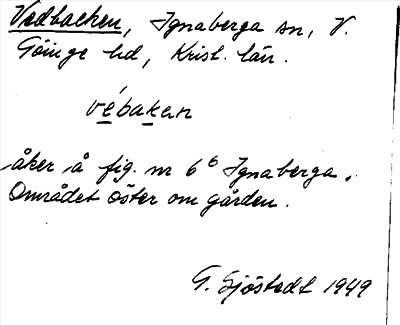 Vedbacken, Ignaberga sn, V.
Göinge hd, Krist. län.
vébakan
åker å fig. nr 6⁶ Ignaberga.
Området öster om gården.
G. Sjöstedt 1949